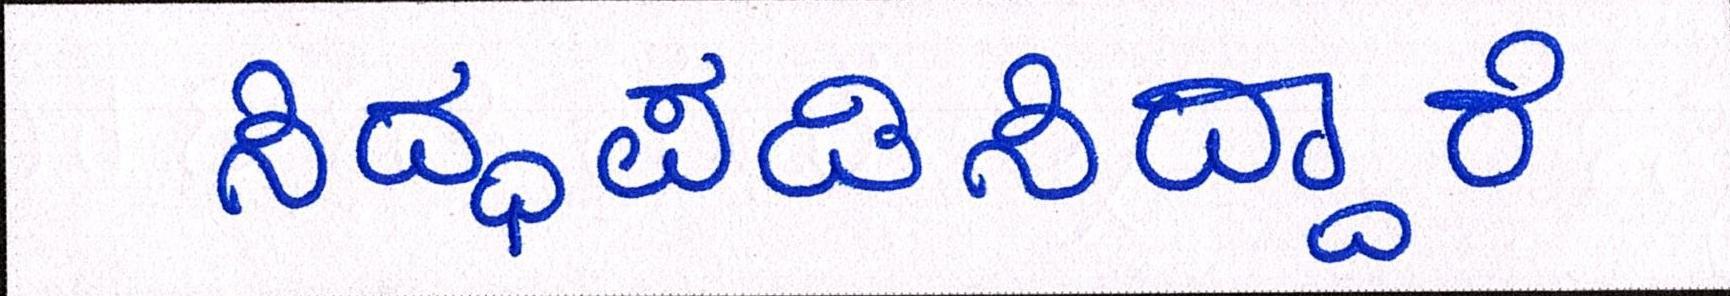 ಸಿದ್ಧಪಡಿಸಿದ್ದಾರೆ